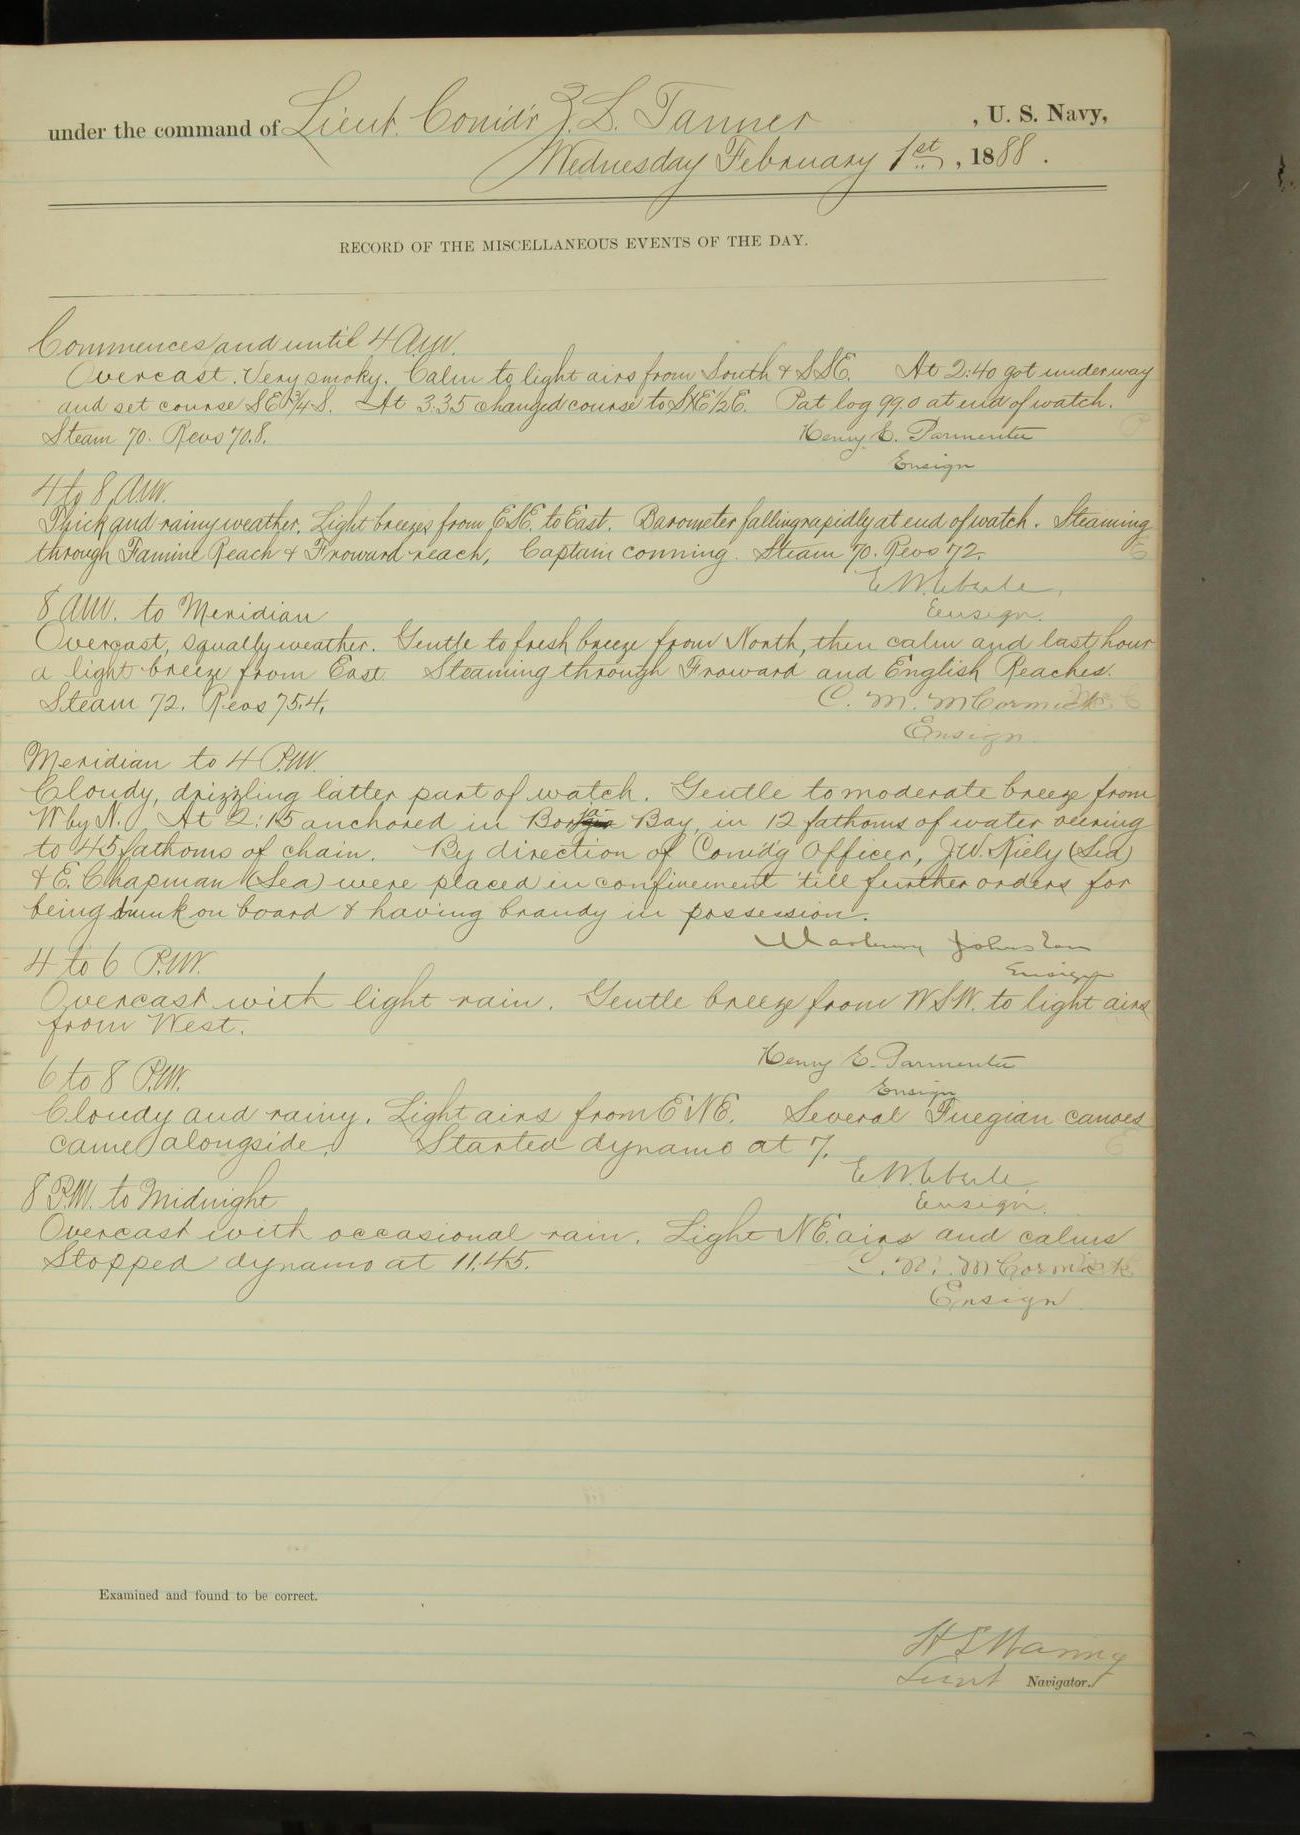 under the command of Lieut. Comd'r Z. L. Tanner, U. S. Navy,
Wednesday February 1st, 1888.
RECORD OF THE MISCELLANEOUS EVENTS OF THE DAY.
Commences and until 4 A.M.
Overcast. Very smoky. Calm to light airs from South & SSE. At 2:40 got underway
and set course SE 3/4 S. At 3.35 changed course to SxE1/2E. Pat log 99.0 at end of watch.
Steam 70. Revs 70.8. Henry E. Parmenter
Ensign
4 to 8 A.M.
Thick and rainy weather. Light breezes from ESE. to East. Barometer falling rapidly at end of watch. Steaming
through Famine Reach & Froward reach, Captain conning. Steam 70. Revs 72.
E. W. Eberle,
Ensign.
8 A.M. to Meridian
Overcast, squally weather. Gentle to fresh breeze from North, then calm and last hour
a light breeze from East. Steaming through Froward and English Reaches.
Steam 72. Revs 75.4. C. M. McCormick
Ensign.
Meridian to 4 P.M.
Cloudy, drizzling latter part of watch. Gentle to moderate breeze from
W by N. At 2:15 anchored in Borja Bay, in 12 fathoms of water veering
to 45 fathoms of chain. By direction of Comd'g Officer, J.W. Kiely (Sea)
& E. Chapman (Sea) were placed in confinement 'till further orders for
being drunk on board & having brandy in possession.
Marbury Johnston
Ensign
4 to 6 P.M.
Overcast with light rain. Gentle breeze from WSW. to light airs
from West.
Henry E. Parmenter
Ensign
6 to 8 P.M.
Cloudy and rainy. Light airs from ENE. Several Fuegian canoes
came alongside. Started dynamo at 7.
E. W. Eberle
Ensign.
8 P.M. to Midnight
Overcast with occasional rain. Light NE. airs and calms
Stopped dynamo at 11.45. C. M. McCormick
Ensign
Examined and found to be correct.
H S Waring
Lieut Navigator.